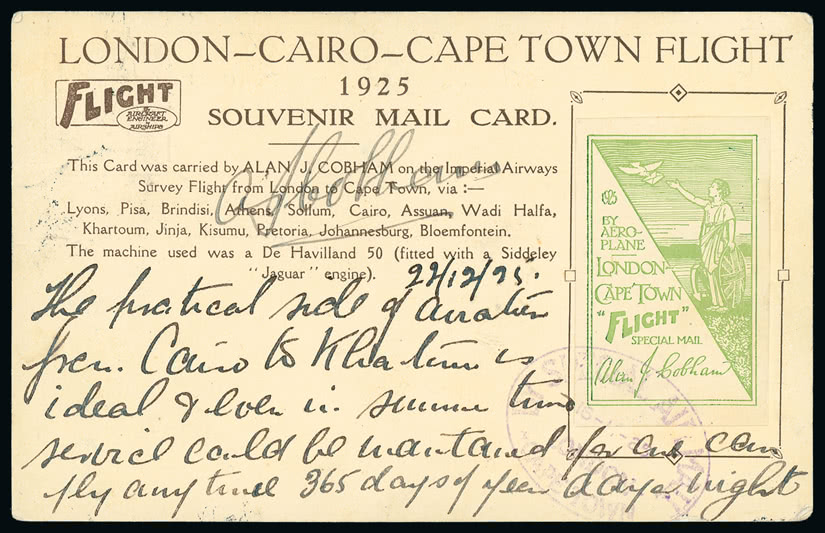 LONDON–CAIRO–CAPE TOWN FLIGHT
1925
FLIGHT
The
AIRCRAFT
ENGINEER
& AIRSHIPS
SOUVENIR MAIL CARD.
This Card was carried by ALAN J. COBHAM on the Imperial Airways
Survey Flight from London to Cape Town, via :—
Lyons, Pisa, Brindisi, Athens, Sollum, Cairo, Assuan, Wadi Halfa,
Khartoum, Jinja, Kisumu, Pretoria, Johannesburg, Bloemfontein.
The machine used was a De Havilland 50 (fitted with a Siddeley
"Jaguar" engine).
AJCobham
22/12/25.
The pratical side of aviation
from Cairo to Khartum is
ideal & even in summer time
service could be maintained for one can
fly any time 365 days of year day & night
1925
BY
AERO-
PLANE
LONDON-
CAPE TOWN
"FLIGHT"
SPECIAL MAIL
Alan J. Cobham